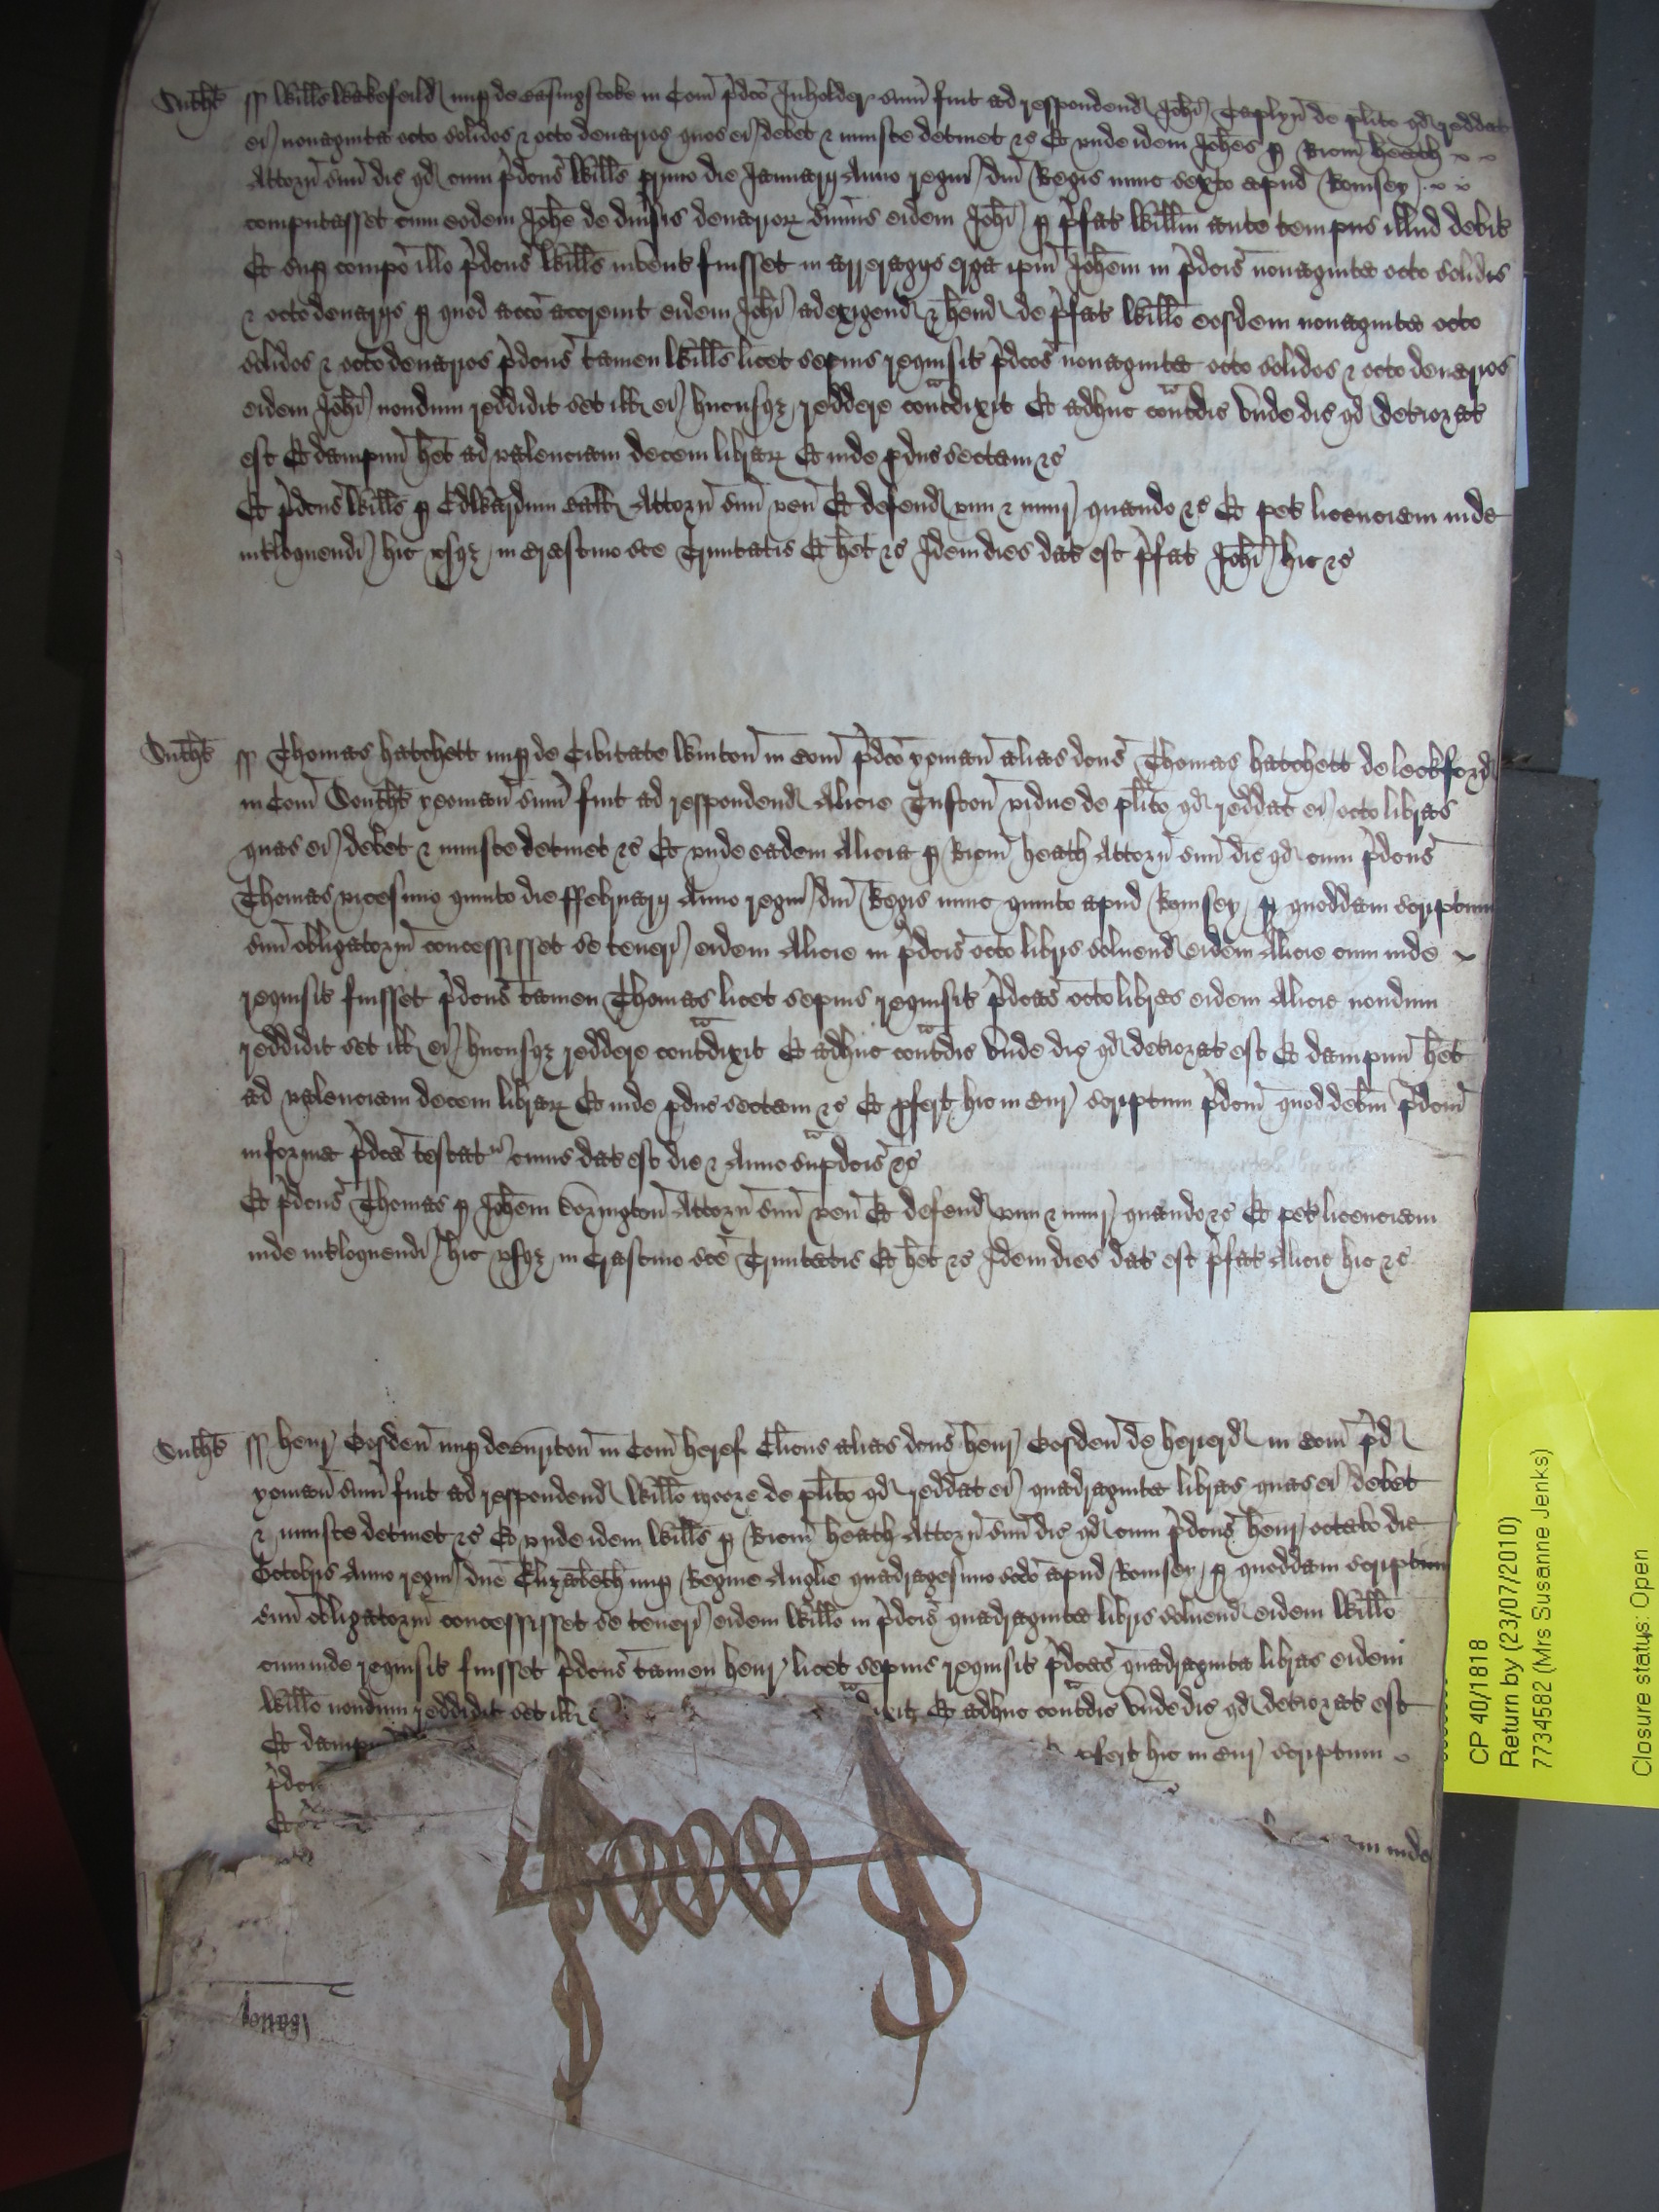 Suthť ss Willũs Wakefeild nuꝑ de Basingstoke in Coɱ p̃dco Inholder sum̃ fuit ad respondend Joħi Taplyn de plito qđ reddat
ei nonaginta octo solidos & octo denarios quos ei debet & iniuste detinet &c Et unde idem Joħes ꝑ Ricɱ heath
Attorñ suũ dic qđ cum p̃dcus Willũs primo die Januarij Anno regni dñi Regis nunc sexto apud Romsey
computasset cum eodem Joħe de diũsis denarior̃ sum̃is eidem Joħi ꝑ p̃fat Willm̃ ante tempus illud debit
Et suꝑ compõ illo p̃dcus Willũs invent fuisset in arreragijs erga ip̃m Joħem in p̃dcis nonaginta octo solidis
& octo denarijs ꝑ quod acc̃o accrevit eidem Joħi ad exigend & hẽnd de p̃fat Willõ eosdem nonaginta octo
solidos & octo denarios p̃dcus tamen Willũs licet sepius requisit p̃dcos nonaginta octo solidos & octo denarios
eidem Joħi nondum reddidit set ill ei hucusqȝ reddere contᵃdixit Et adhuc contᵃdic Unde dic qđ deteriorat
est Et dampnũ hẽt ad valenciam decem librar̃ Et inde ꝓduc sectam &c
Et p̃dcus Willũs ꝑ Edwardum Attorñ suũ veñ Et defend vim & iniur quando &c Et pet licenciam inde
inťloquendi hic usqȝ in Crastino sc̃e Trinitatis Et hẽt &c Idem dies dat est p̃fat Joħi hic &c
Suthť ss Thomas hatchett nuꝑ de Civitate Wintoñ in Coɱ p̃dco yomañ alias dcus Thomas hatchett de leckford
in Coɱ Southť yeomañ sum̃ fuit ad respondend Alicie Tuſtoñ vidue de plito qđ reddat ei octo libras
quas ei debet & iniuste detinet &c Et unde eadem Alicia ꝑ Ricɱ heath Attorñ suũ dic qđ cum p̃dcus
Thomas vicesimo quinto die ffebruarij Anno regni dñi Regis nunc quinto apud Romsey ꝑ quoddam scriptum
suũ obligatoriũ concessisset se teneri eidem Alicie in p̃dcis octo libris solvend eidem Alicie cum inde
requisit fuisset p̃dcus tamen Thomas licet sepius requisit p̃dcas octo libras eidem Alicie nondum
reddidit set ill ei hucusqȝ reddere contᵃdixit Et adhuc contᵃdic Unde dic qđ deteriorat est Et dampnũ hẽt
ad valenciam decem librar̃ Et inde ꝓduc sectam &c Et ꝓfert hic in cur scriptum p̃dcɱ quod debm̃ p̃dcɱ
in forma p̃dca testatʳ cuius dat est die & Anno supᵃdcis &c
Et p̃dcus Thomas ꝑ Joħem Doringtoñ Attorñ suũ veñ Et defend vim & iniur quando &c Et pet licenciam
inde inťloquendi hic usqȝ in Crastino sc̃e Trinitatis Et hẽt &c Idem dies dat est p̃fat Alicie hic &c
Suthť ss henr Cosdeñ nuꝑ de in Coɱ heref Cl̃icus alias dcus henr Cosdeñ de heriard in Coɱ p̃d
yomañ sum̃ fuit ad respondend Willõ moore de plito qđ reddat ei quadraginta libras quas ei debet
& iniuste detinet &c Et unde idem Willũs ꝑ Ricɱ heath Attorñ suũ dic qđ cum p̃dcus henr octavo die
Octobris Anno regni dñe Elizabeth nuꝑ Regine Anglie quadragesimo scdo apud Romsey ꝑ quoddam scriptum
suũ obligatoriũ concessisset se teneri eidem Willõ in p̃dcis quadraginta libris solvend eidem Willõ
cum inde requisit fuisset p̃dcus tamen henr licet sepius requisit p̃dcas quadraginta libras eidem
Willõ nondum reddidit set ill dixit Et adhuc contᵃdic Unde dic qđ deteriorat est
Et dampnũ ꝓfert hic in cur scriptum
p̃dcɱ
Et inde
CP 40/1818
Return by (23/07/2010)
7734582 (Mrs Susanne Jenks)
Closure status: Open